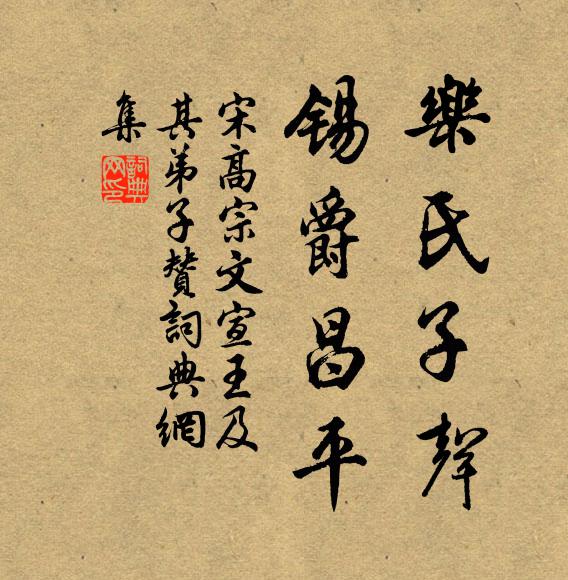 樂氏子聲
錫爵昌平
宋高宗文宣王及
其弟子贊詞典網
集
詞典
网印